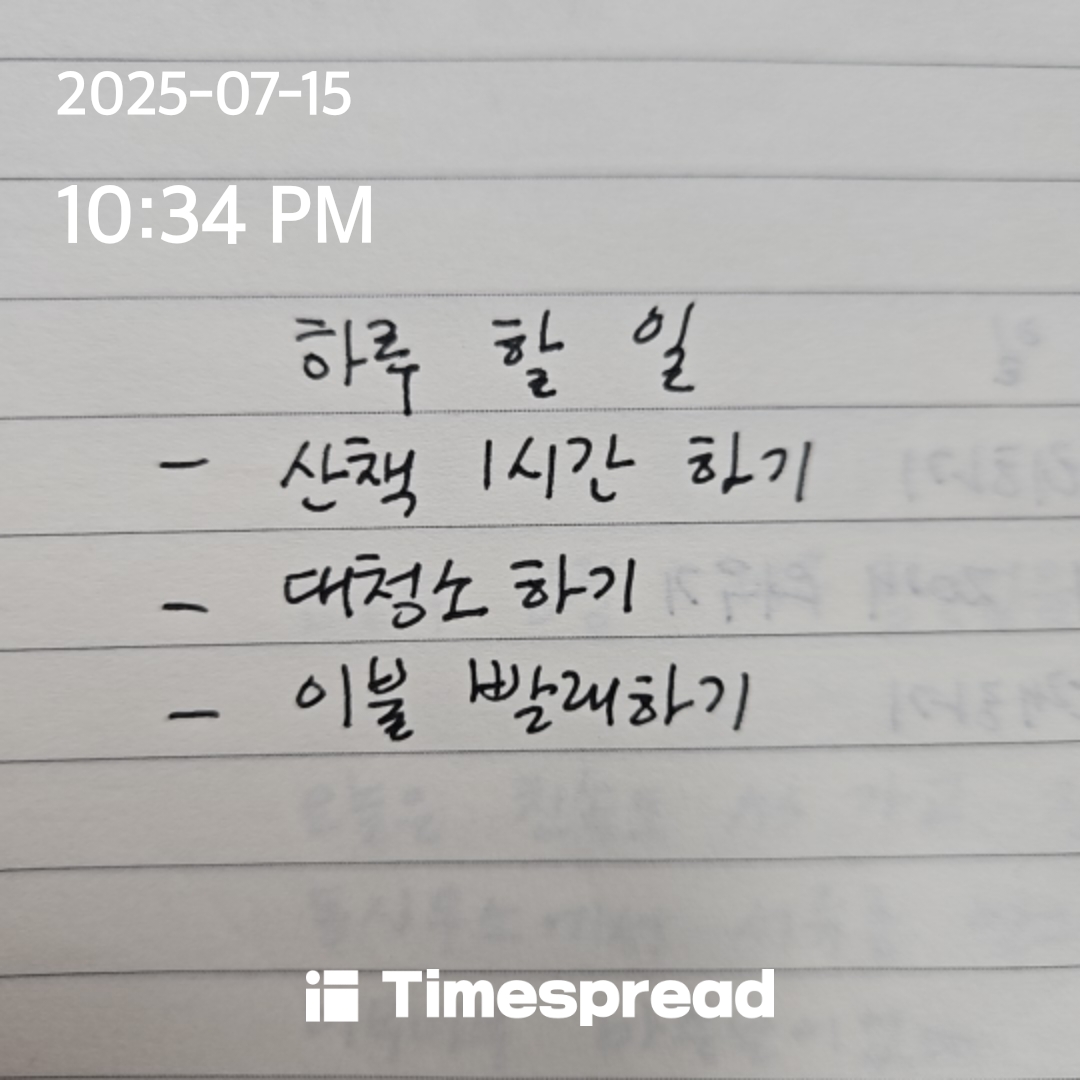 2025-07-15
10:34 PM
하루 할 일
- 산책 1시간 하기
- 대청소 하기
- 이불 빨래하기
Timespread